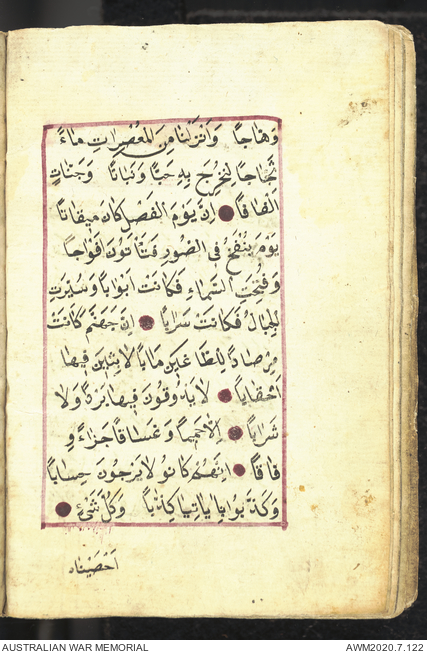 وَهَّاجًا وَاَنْزَلْنَا مِنَ الْمُعْصِرَاتِ مَاءً
ثَجَّاجًا لِنُخْرِجَ بِهِ حَبًّا وَنَبَاتًا وَجَنَّاتٍ
اَلْفَافًا اِنَّ يَوْمَ الْفَصْلِ كَانَ مِيقَاتًا
يَوْمَ يُنْفَخُ فِي الصُّورِ فَتَاْتُونَ اَفْوَاجًا
وَفُتِحَتِ السَّمَاءُ فَكَانَتْ اَبْوَابًا وَسُيِّرَتِ
الْجِبَالُ فَكَانَتْ سَرَابًا اِنَّ جَهَنَّمَ كَانَتْ
مِرْصَادًا لِلطَّاغِينَ مَابًا لَابِثِينَ فِيهَا
اَحْقَابًا لَا يَذُوقُونَ فِيهَا بَرْدًا وَلَا
شَرَابًا اِلَّا حَمِيمًا وَغَسَّاقًا جَزَاءً وِ
فَاقًا اِنَّهُمْ كَانُو لَا يَرْجُونَ حِسَابًا
وَكَذَّبُوا بِاٰيَاتِنَا كِذَّابًا وَكُلَّ شَيْءٍ
اَحْصَيْنَاهُ
AUSTRALIAN WAR MEMORIAL AWM2020.7.122